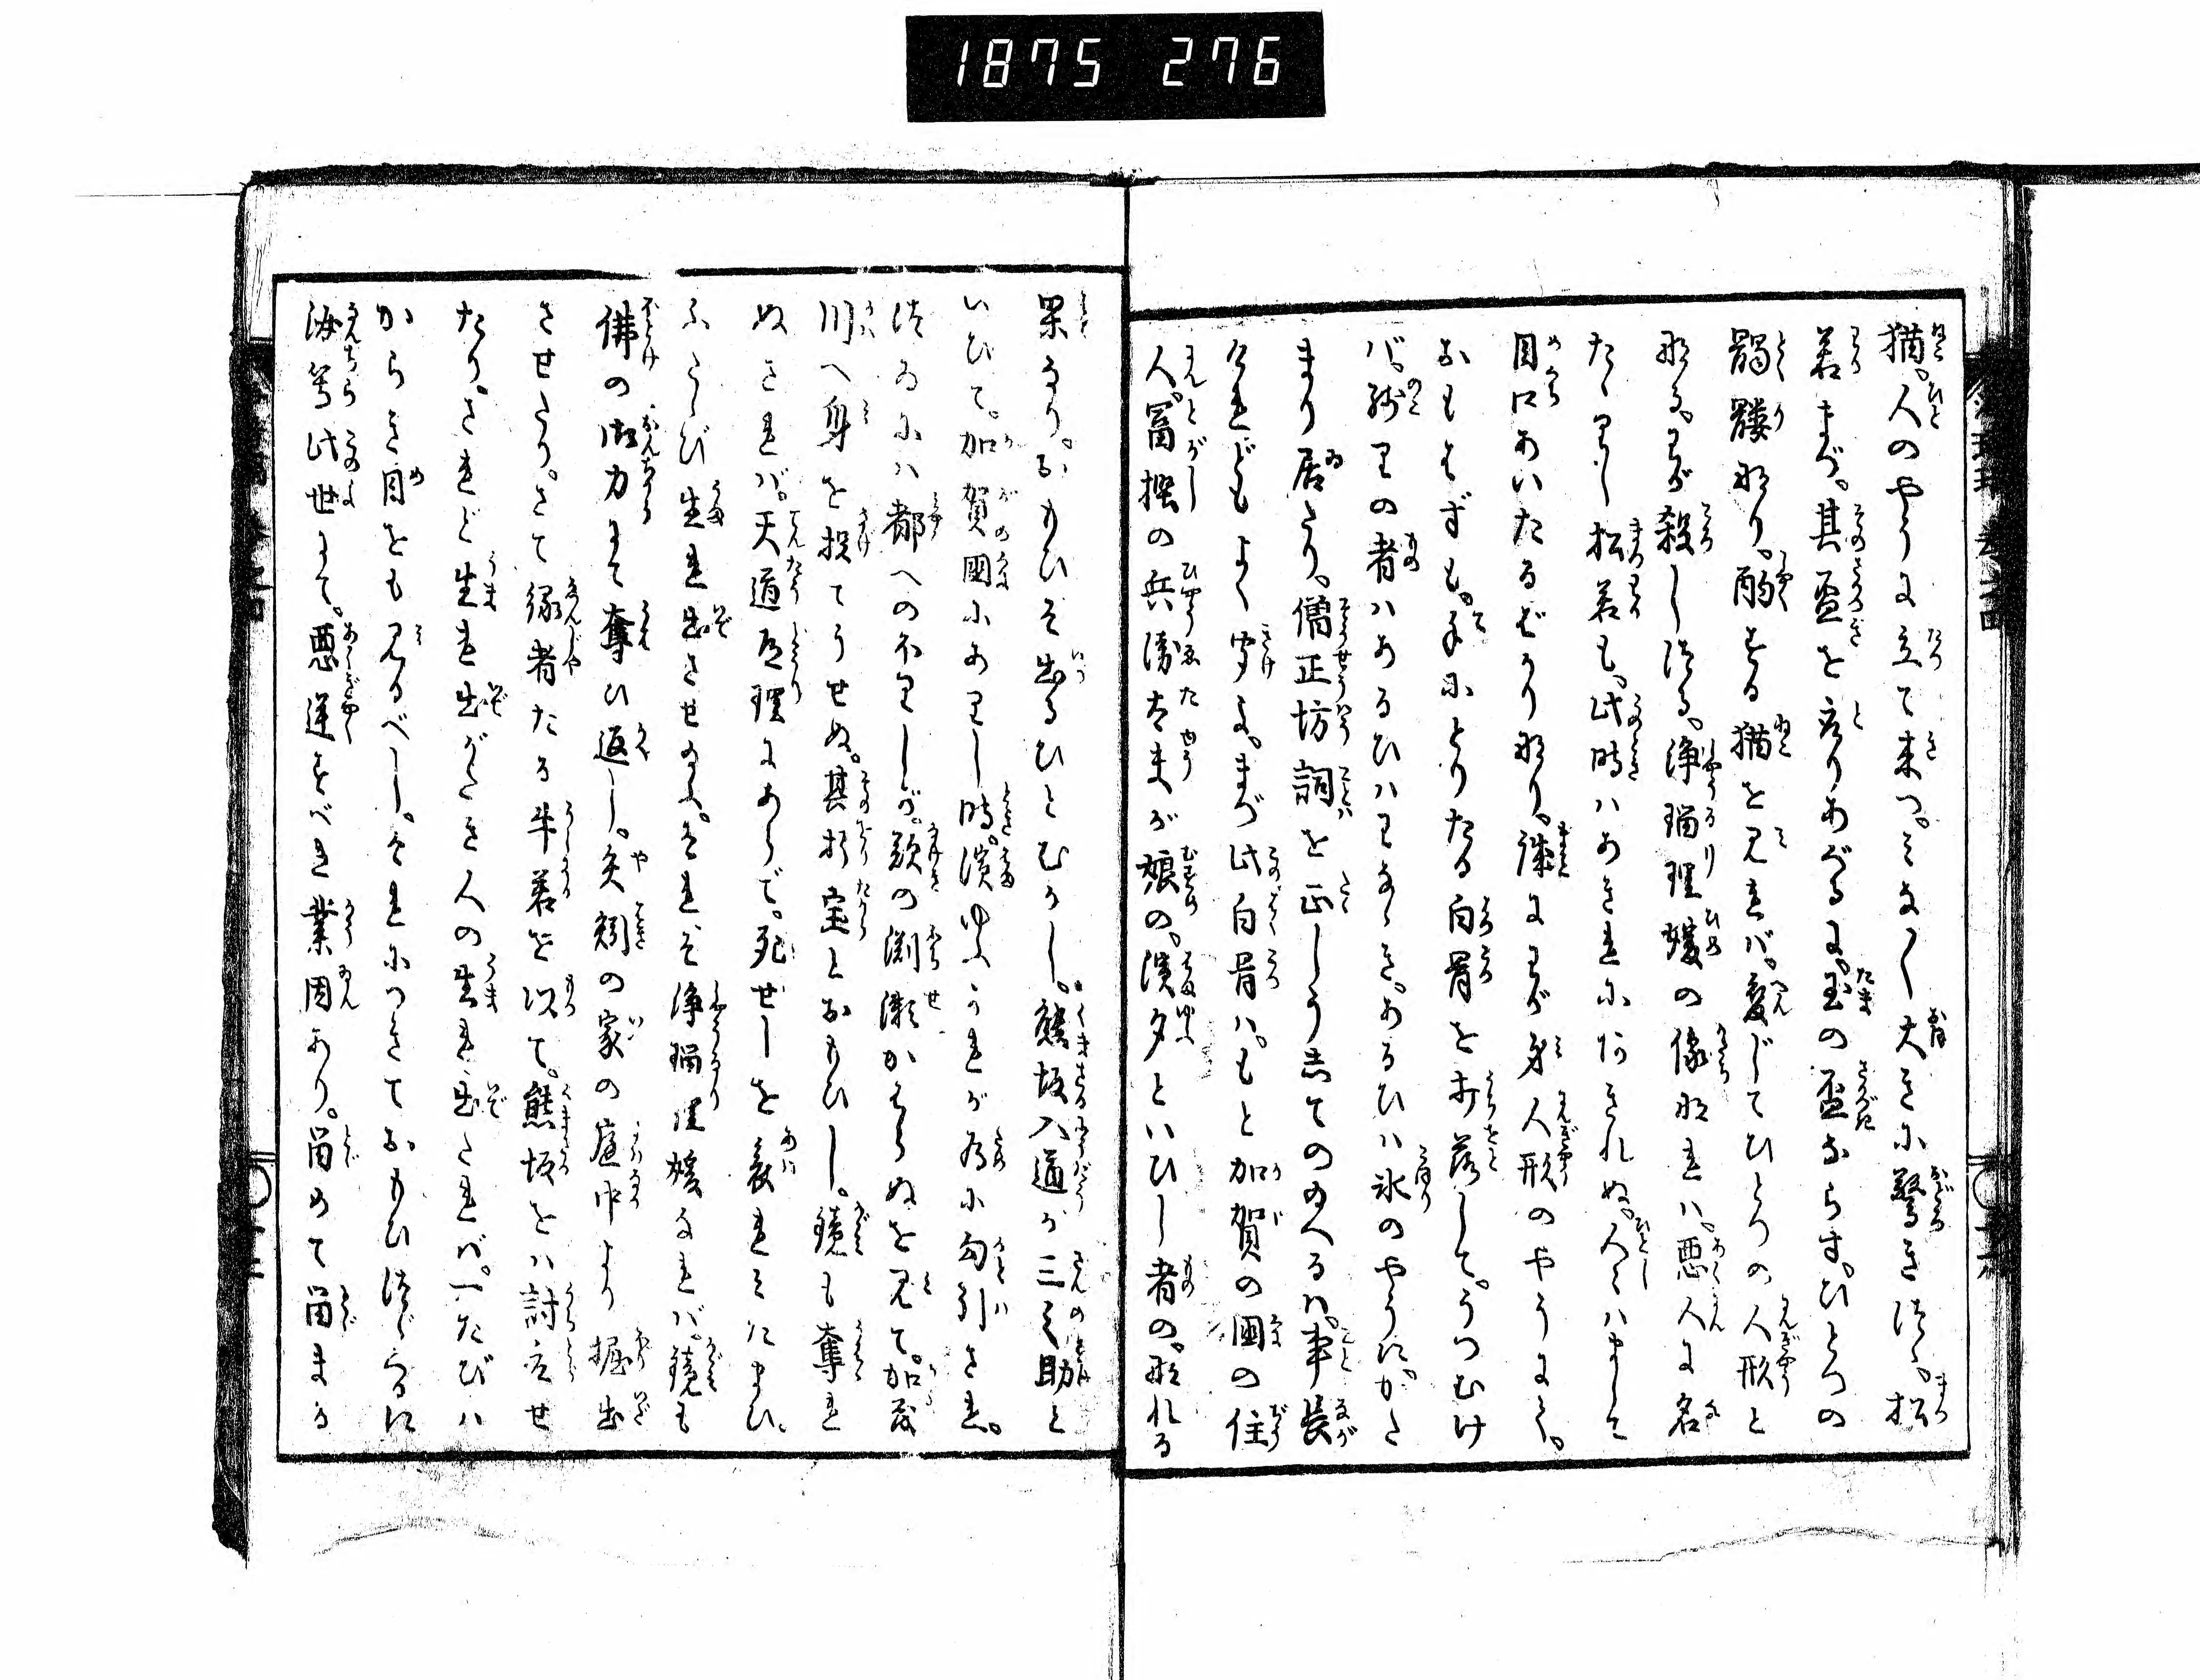 1875 276
猫。人のやうに立て来つ。みな〳〵大きに驚き給ふ。松
若まづ。其盃をとりあぐるに。玉の盃ならず。ひとつの
髑髏なり。酌とる猫を見れバ。変じてひとつの人形と
なる。わが殺しつる。浄瑠理媛の像なれハ。悪人に名
たゝりし松若も。此時ハあきれにあきれぬ。人々ハまして
目口あいたるばかりなり。誰にわが身人形のやうにて。
おもはずも。手にとりたる白骨を打落して。うつむけ
バ。残りの者ハあるひハわなゝき。あるひハ氷のやうに。かた
まり居たり。僧正坊詞を正しうしてののへるハ。事長
けれどもよく聞よ。まづ此白骨ハ。もと加賀の國の住
人。冨樫の兵衛太夫が娘の。濱夕といひし者の。なれる
果なり。おもひぞ出るひとむかし。熊坂入道が三之助と
いひて。加賀國にありし時。濱ゆふかれが為に勾引され。
つゐにハ都へのぼりしが。歎の渕瀬かはらぬを見て。加茂
川へ身を投てうせぬ。其折宝とおもひし。鏡も奪れ
ぬされバ。天道道理にあらで。死せしを哀れみたまひ。
ふたゝび生れ出させ給ふ。それぞ浄瑠理媛なれバ。鏡も
佛の御力にて奪ひ返し。矢矧の家の庭中より掘出
させたり。さて縁者たる牛若を以て。熊坂をハ討たせ
たり。されど生れ出がたき人の生れ出たれバ。一たびハ
からき目をも見るべし。それにつきておもひつゞくるに
汝等此世にて。悪逆すべき業因あり。留めて留まる